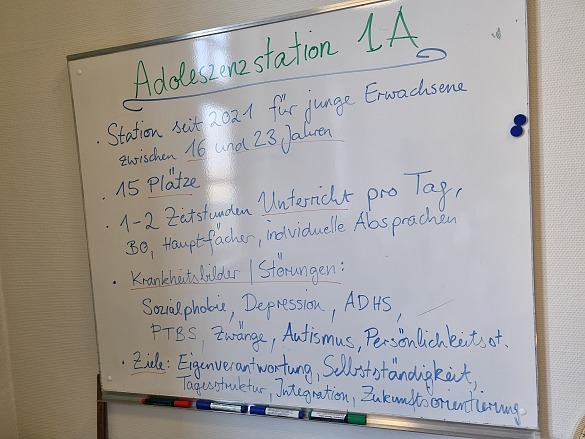 Adoleszenzstation 1A
• Station seit 2021 für junge Erwachsene
zwischen 16 und 23 Jahren
• 15 Plätze
• 1-2 Zeitstunden Unterricht pro Tag,
BO, Hauptfächer, individuelle Absprachen
• Krankheitsbilder / Störungen:
Sozialphobie, Depression, ADHS,
PTBS, Zwänge, Autismus, Persönlichkeitsst.
• Ziele: Eigenverantwortung, Selbstständigkeit,
Tagesstruktur, Integration, Zukunftsorientierung